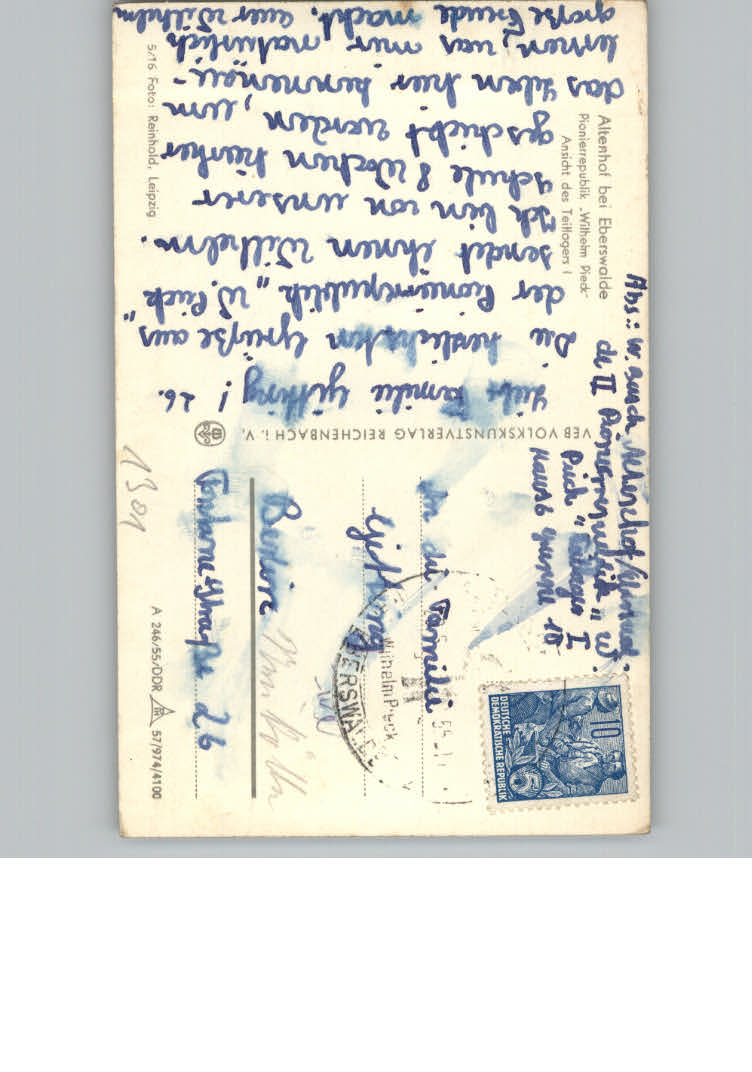 Altenhof bei Eberswalde
Pionierrepublik „Wilhelm Pieck“
Ansicht des Teillagers I
Liebe Familie Güttling! 26.
Die herzlichsten Grüße aus
der Pionierrepublik „W. Pieck“
sendet ihnen Wilhelm.
Ich bin von unserer
Schule 8 Wochen hierher
geschickt worden, um
das Leben hier kennenzu-
lernen, was mir natürlich
große Freude macht. euer Wilhelm
5/16 Foto: Reinhold, Leipzig
VEB VOLKSKUNSTVERLAG REICHENBACH i. V.
Abs.: W.
Pionierrepublik „W.
Pieck“ Teillager I
Haus 6 Gruppe 10
An die Familie
Berlin
26
1301
10
DEUTSCHE
DEMOKRATISCHE REPUBLIK
EBERSWALDE
Wilhelm Pieck
A 246/55/DDR 57/974/4100